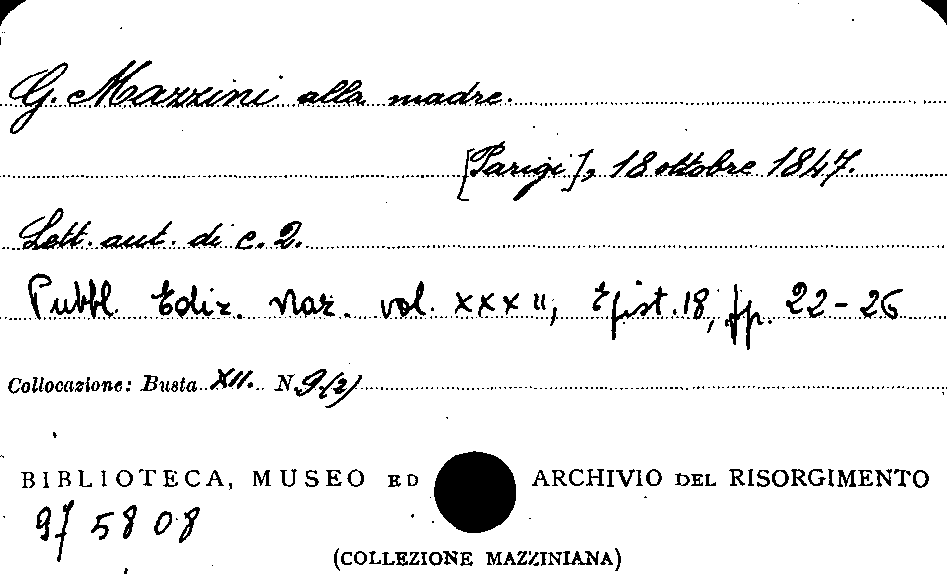 G. Mazzini alla madre.
[Parigi], 18 ottobre 1847.
Lett. aut. di c. 2.
Pubbl. Ediz. Naz. vol. XXXII, Epist. 18, pp. 22-26
Collocazione: Busta XII. N. 9(2)
BIBLIOTECA, MUSEO ED ARCHIVIO DEL RISORGIMENTO
975808
(COLLEZIONE MAZZINIANA)